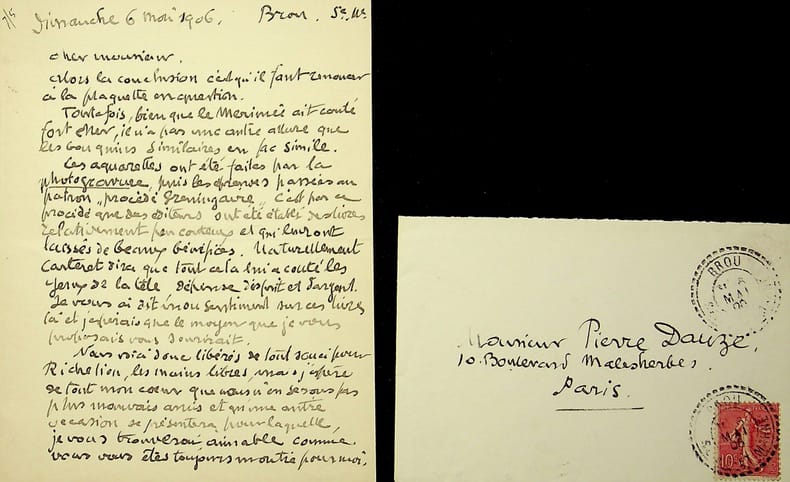 7/5
Dimanche 6 mai 1906. Brou. S. M.
Cher monsieur.
Alors la conclusion c'est qu'il faut renoncer
à la plaquette en question.
Toutefois, bien que le Merimée ait couté
fort cher, il n'a pas une autre allure que
les bouquins similaires en fac simile.
Les aquarelles ont été faites par la
photogravure, puis les épreuves passées au
patron, procédé Greningaire, c'est par ce
procédé que des éditeurs ont été établi des livres
relativement peu couteux et qui leur ont
laissés de beaux bénéfices. Naturellement
Carteret dira que tout cela lui a couté les
yeux de la tête dépense d'esprit et d'argent.
Je vous ai dit mon sentiment sur ces livres
là et j'espérais que le moyen que je vous
proposais vous sourirait.
Nous voici donc libérés de tout souci pour
Richelieu, les mains libres, mais j'espère
de tout mon cœur que nous n'en serons pas
plus mauvais amis et qu'une autre
occasion se présentera pour laquelle,
je vous trouverai aimable comme
vous vous êtes toujours montré pour moi.
Monsieur Pierre Dauze,
10. Boulevard Malesherbes.
Paris.
BROU
MAI
BROU
MAI
10